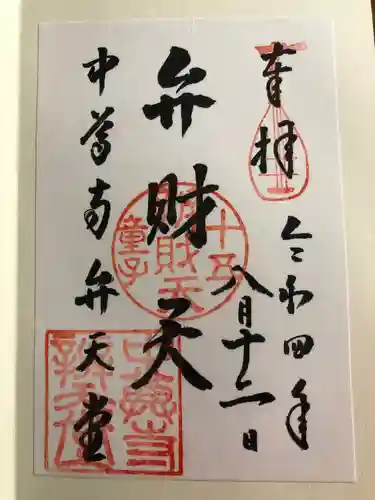 奉拝
令和四年
八月十二日
弁財天
十五
財天
童子
中尊寺弁天堂
中尊寺